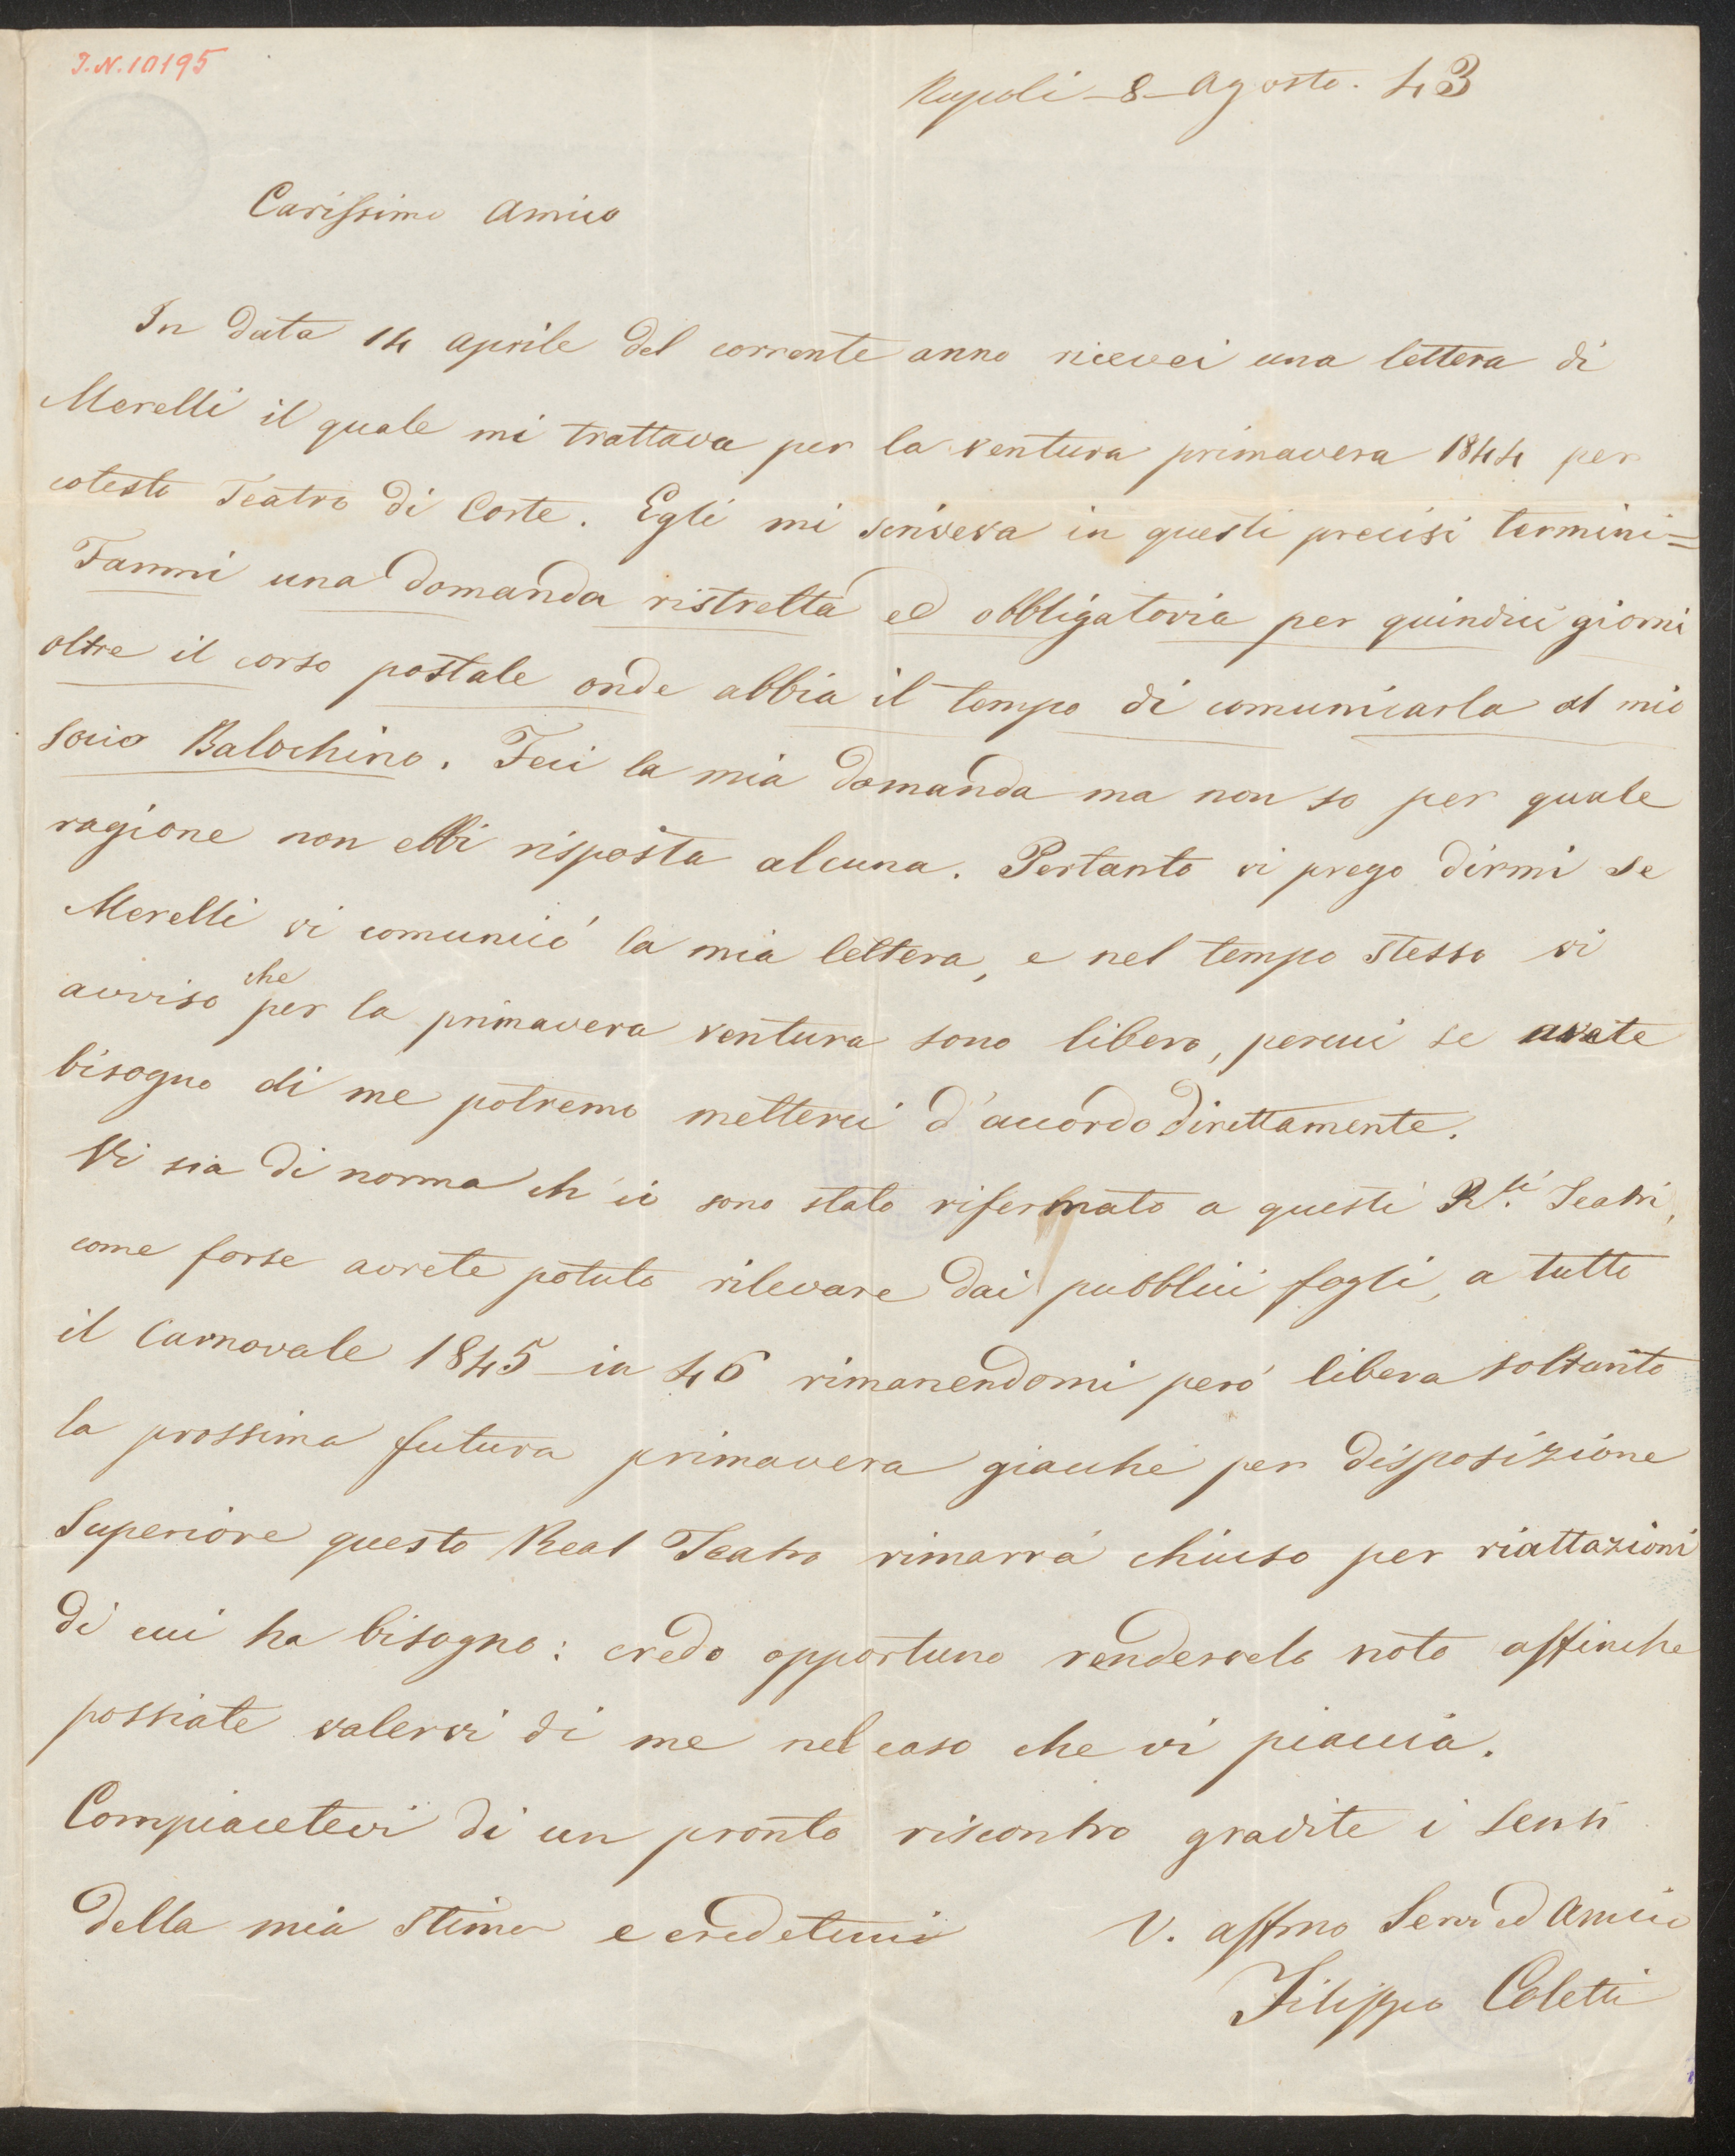 I.N.10195
Napoli - 8 - Agosto. 43
Carissimo Amico
In data 14 aprile del corrente anno ricevei una lettera di
Merelli il quale mi trattava per la ventura primavera 1844 per
cotesto Teatro di Corte. Egli mi scriveva in questi precisi termini=
Fammi una domanda ristretta ed obbligatoria per quindici giorni
oltre il corso postale onde abbia il tempo di comunicarla al mio
socio Balochino. Feci la mia domanda ma non so per quale
ragione non ebbi risposta alcuna. Pertanto vi prego dirmi se
Merelli vi comunicó la mia lettera, e nel tempo stesso vi
avviso che per la primavera ventura sono libero, percui se avete
bisogno di me potremo metterci d'accordo direttamente.
Vi sia di norma ch'io sono stato rifermato a questi R.li Teatri,
come forse avrete potuto rilevare dai pubblici fogli, a tutto
il Carnovale 1845 - in 46 rimanendomi peró libera soltanto
la prossima futura primavera giacché per disposizione
Superiore questo Real Teatro rimarrá chiuso per riattazioni
di cui ha bisogno: credo opportuno rendervelo noto affinche
possiate valervi di me nel caso che vi piaccia.
Compiacetevi di un pronto riscontro gradite i sensi
della mia stima e credetemi V. affmo Serv ed Amico
Filippo Coletti